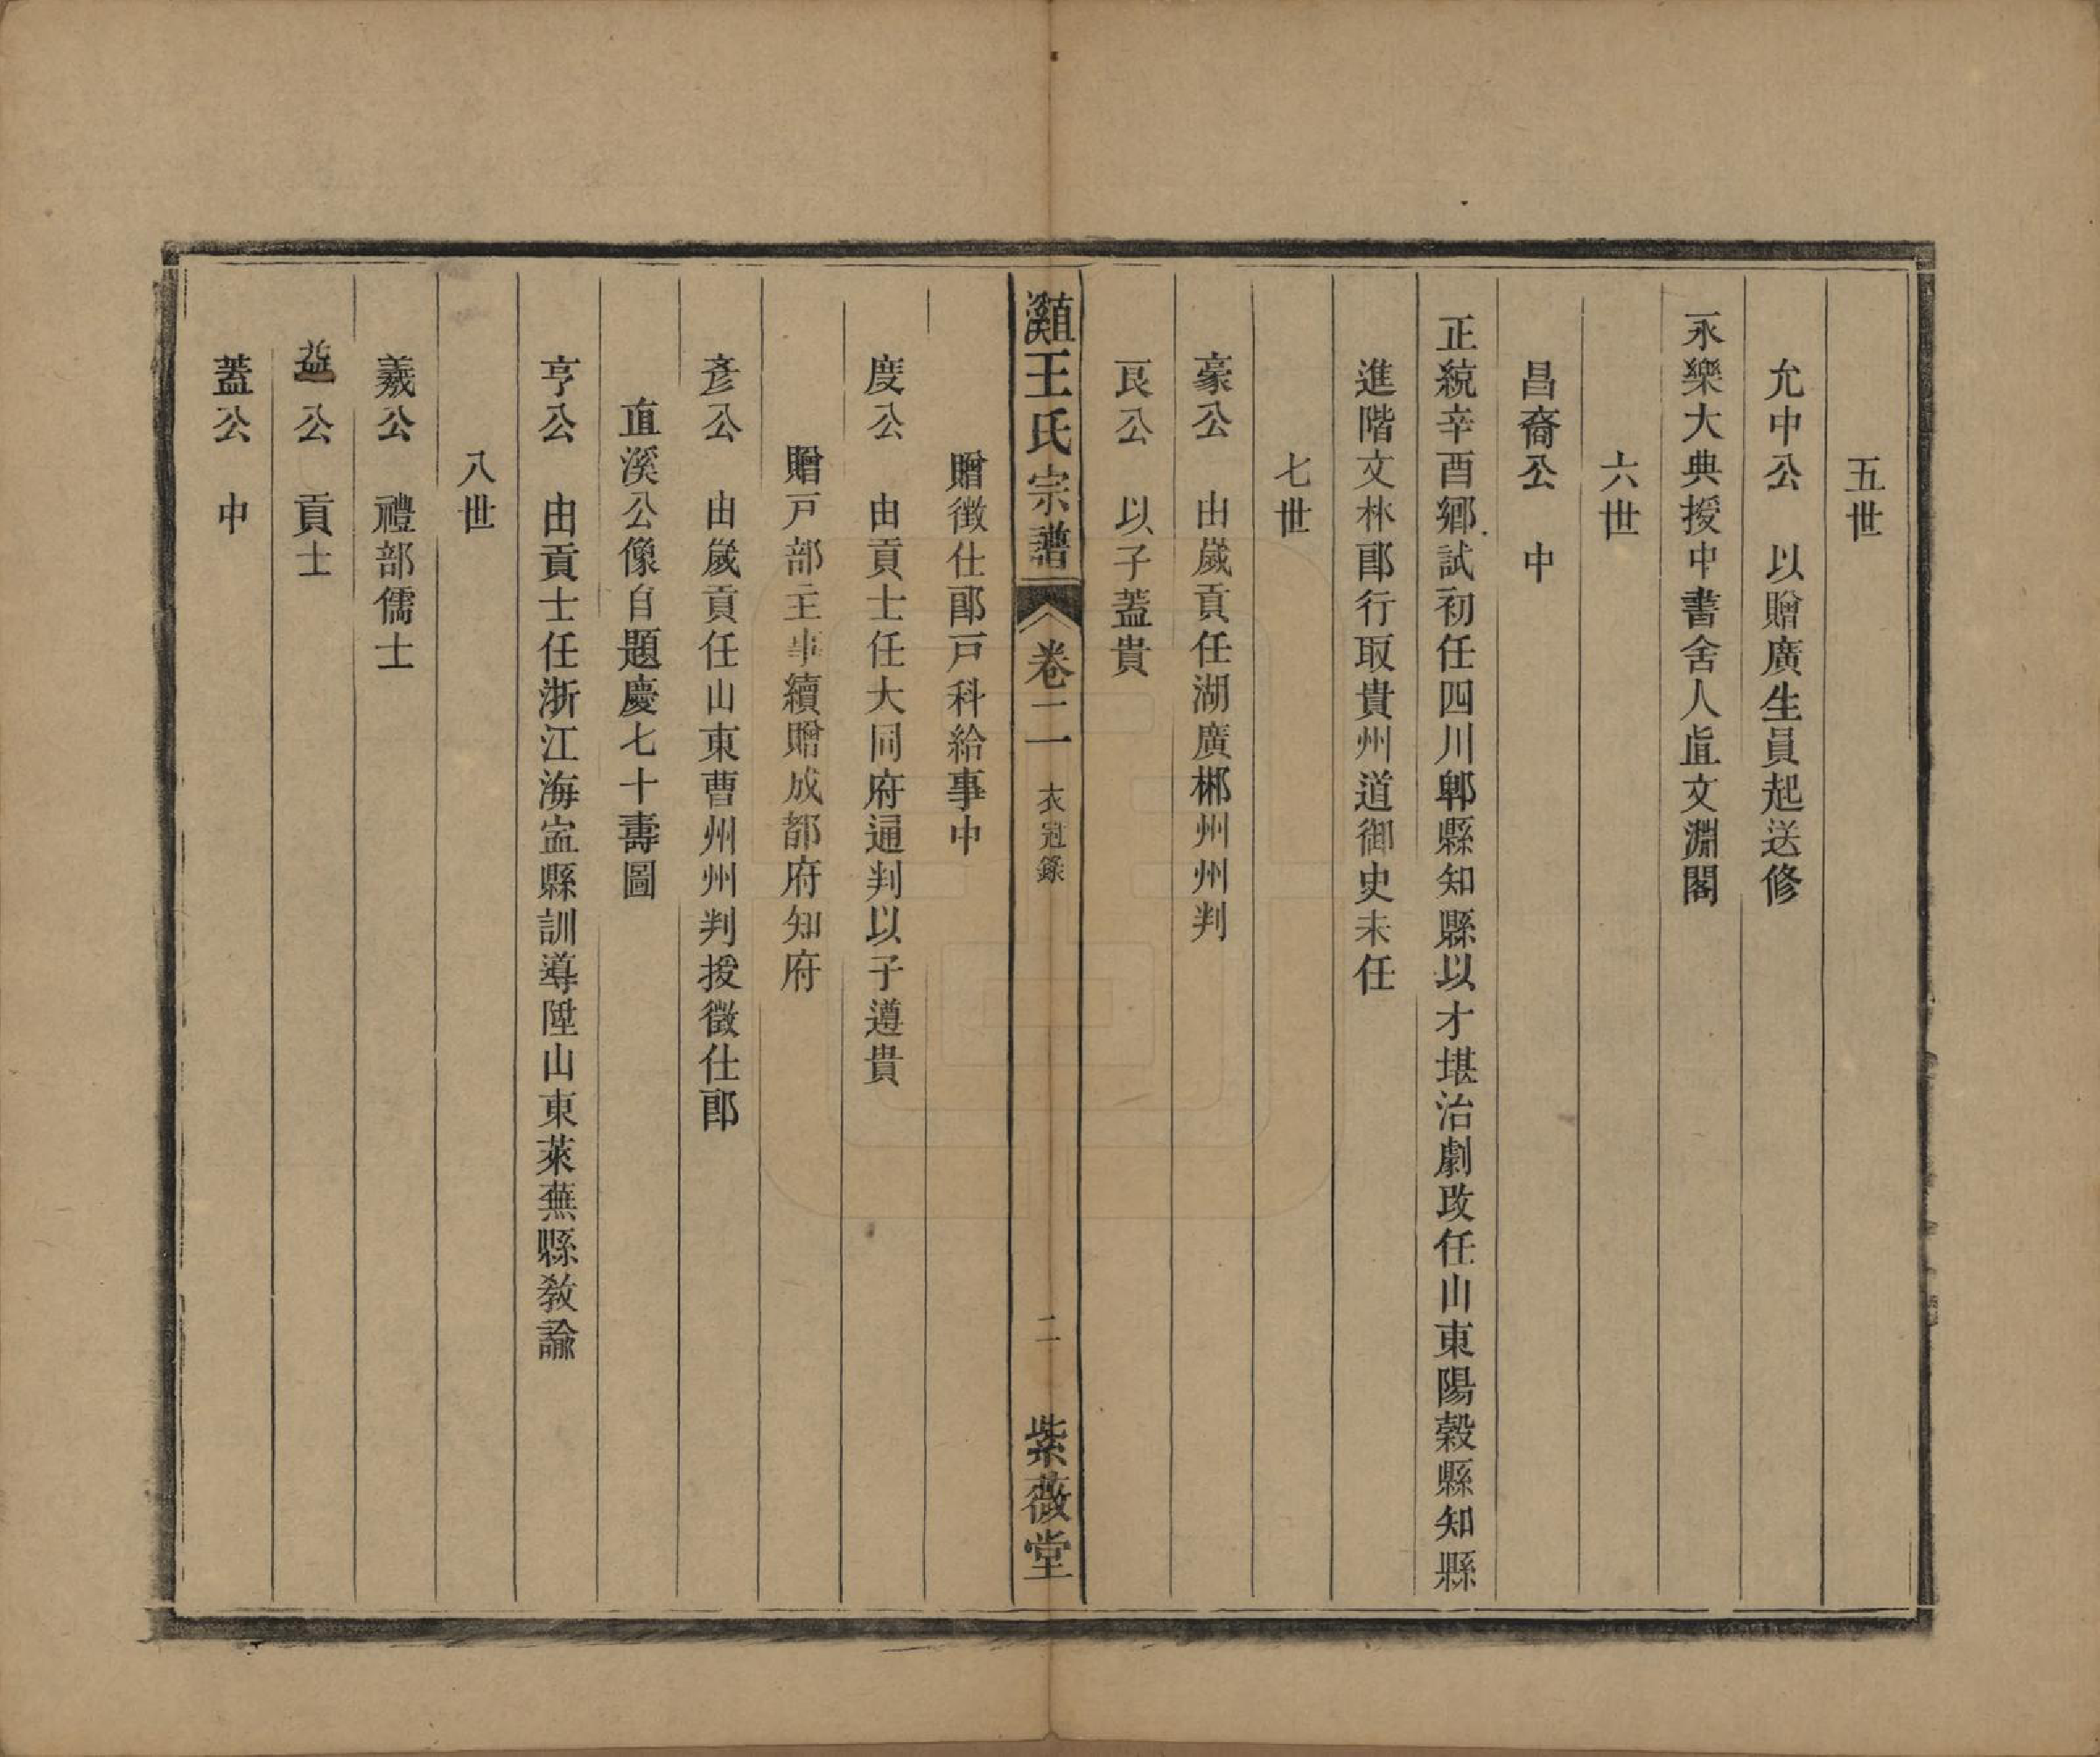 五世
允中公　以贈廣生員起送修
永樂大典授中書舍人直文淵閣
六世
昌裔公　中
正統辛酉鄉試初任四川郫縣知縣以才堪治劇改任山東陽穀縣知縣
進階文林郎行取貴州道御史未任
七世
豪公　由歲貢任湖廣郴州州判
良公　以子蓋貴
直溪王氏宗譜　卷二　衣冠錄　二　紫薇堂
贈徵仕郎戸科給事中
度公　由貢士任大同府通判以子遵貴
贈戸部主事續贈成都府知府
彥公　由歲貢任山東曹州州判授徵仕郎
直溪公像自題慶七十壽圖
亨公　由貢士任浙江海寍縣訓導陞山東萊蕪縣敎諭
八世
羲公　禮部儒士
益公　貢士
蓋公　中